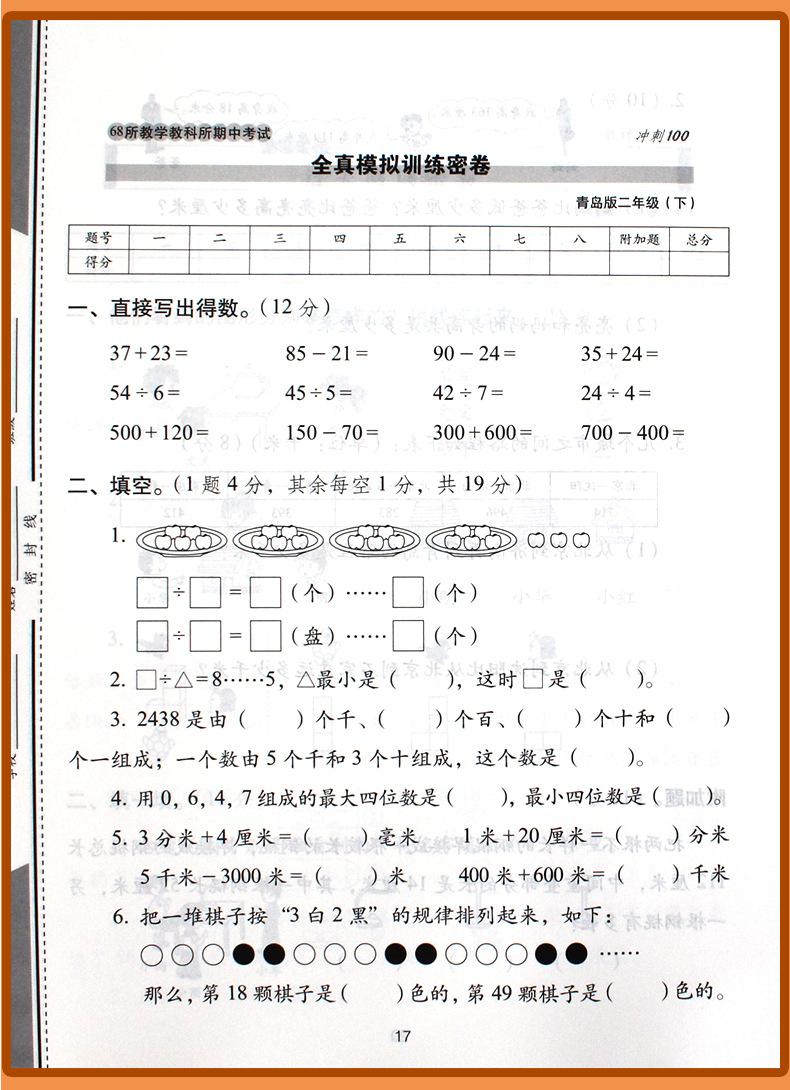 68所教学教科所期中考试
冲刺100
全真模拟训练密卷
青岛版二年级（下）
题号 一 二 三 四 五 六 七 八 附加题 总分
得分
一、直接写出得数。（12分）
37+23= 85-21= 90-24= 35+24=
54÷6= 45÷5= 42÷7= 24÷4=
500+120= 150-70= 300+600= 700-400=
二、填空。（1题4分，其余每空1分，共19分）
1.
□÷□=□（个）……□（个）
□÷□=□（盘）……□（个）
2. □÷△=8……5，△最小是（ ），这时□是（ ）。
3. 2438是由（ ）个千、（ ）个百、（ ）个十和（ ）
个一组成；一个数由5个千和3个十组成，这个数是（ ）。
4. 用0，6，4，7组成的最大四位数是（ ），最小四位数是（ ）。
5. 3分米+4厘米=（ ）毫米 1米+20厘米=（ ）分米
5千米-3000米=（ ）米 400米+600米=（ ）千米
6. 把一堆棋子按“3白2黑”的规律排列起来，如下：
○○○●●○○○●●○○○●●……
那么，第18颗棋子是（ ）色的，第49颗棋子是（ ）色的。
17
密封线